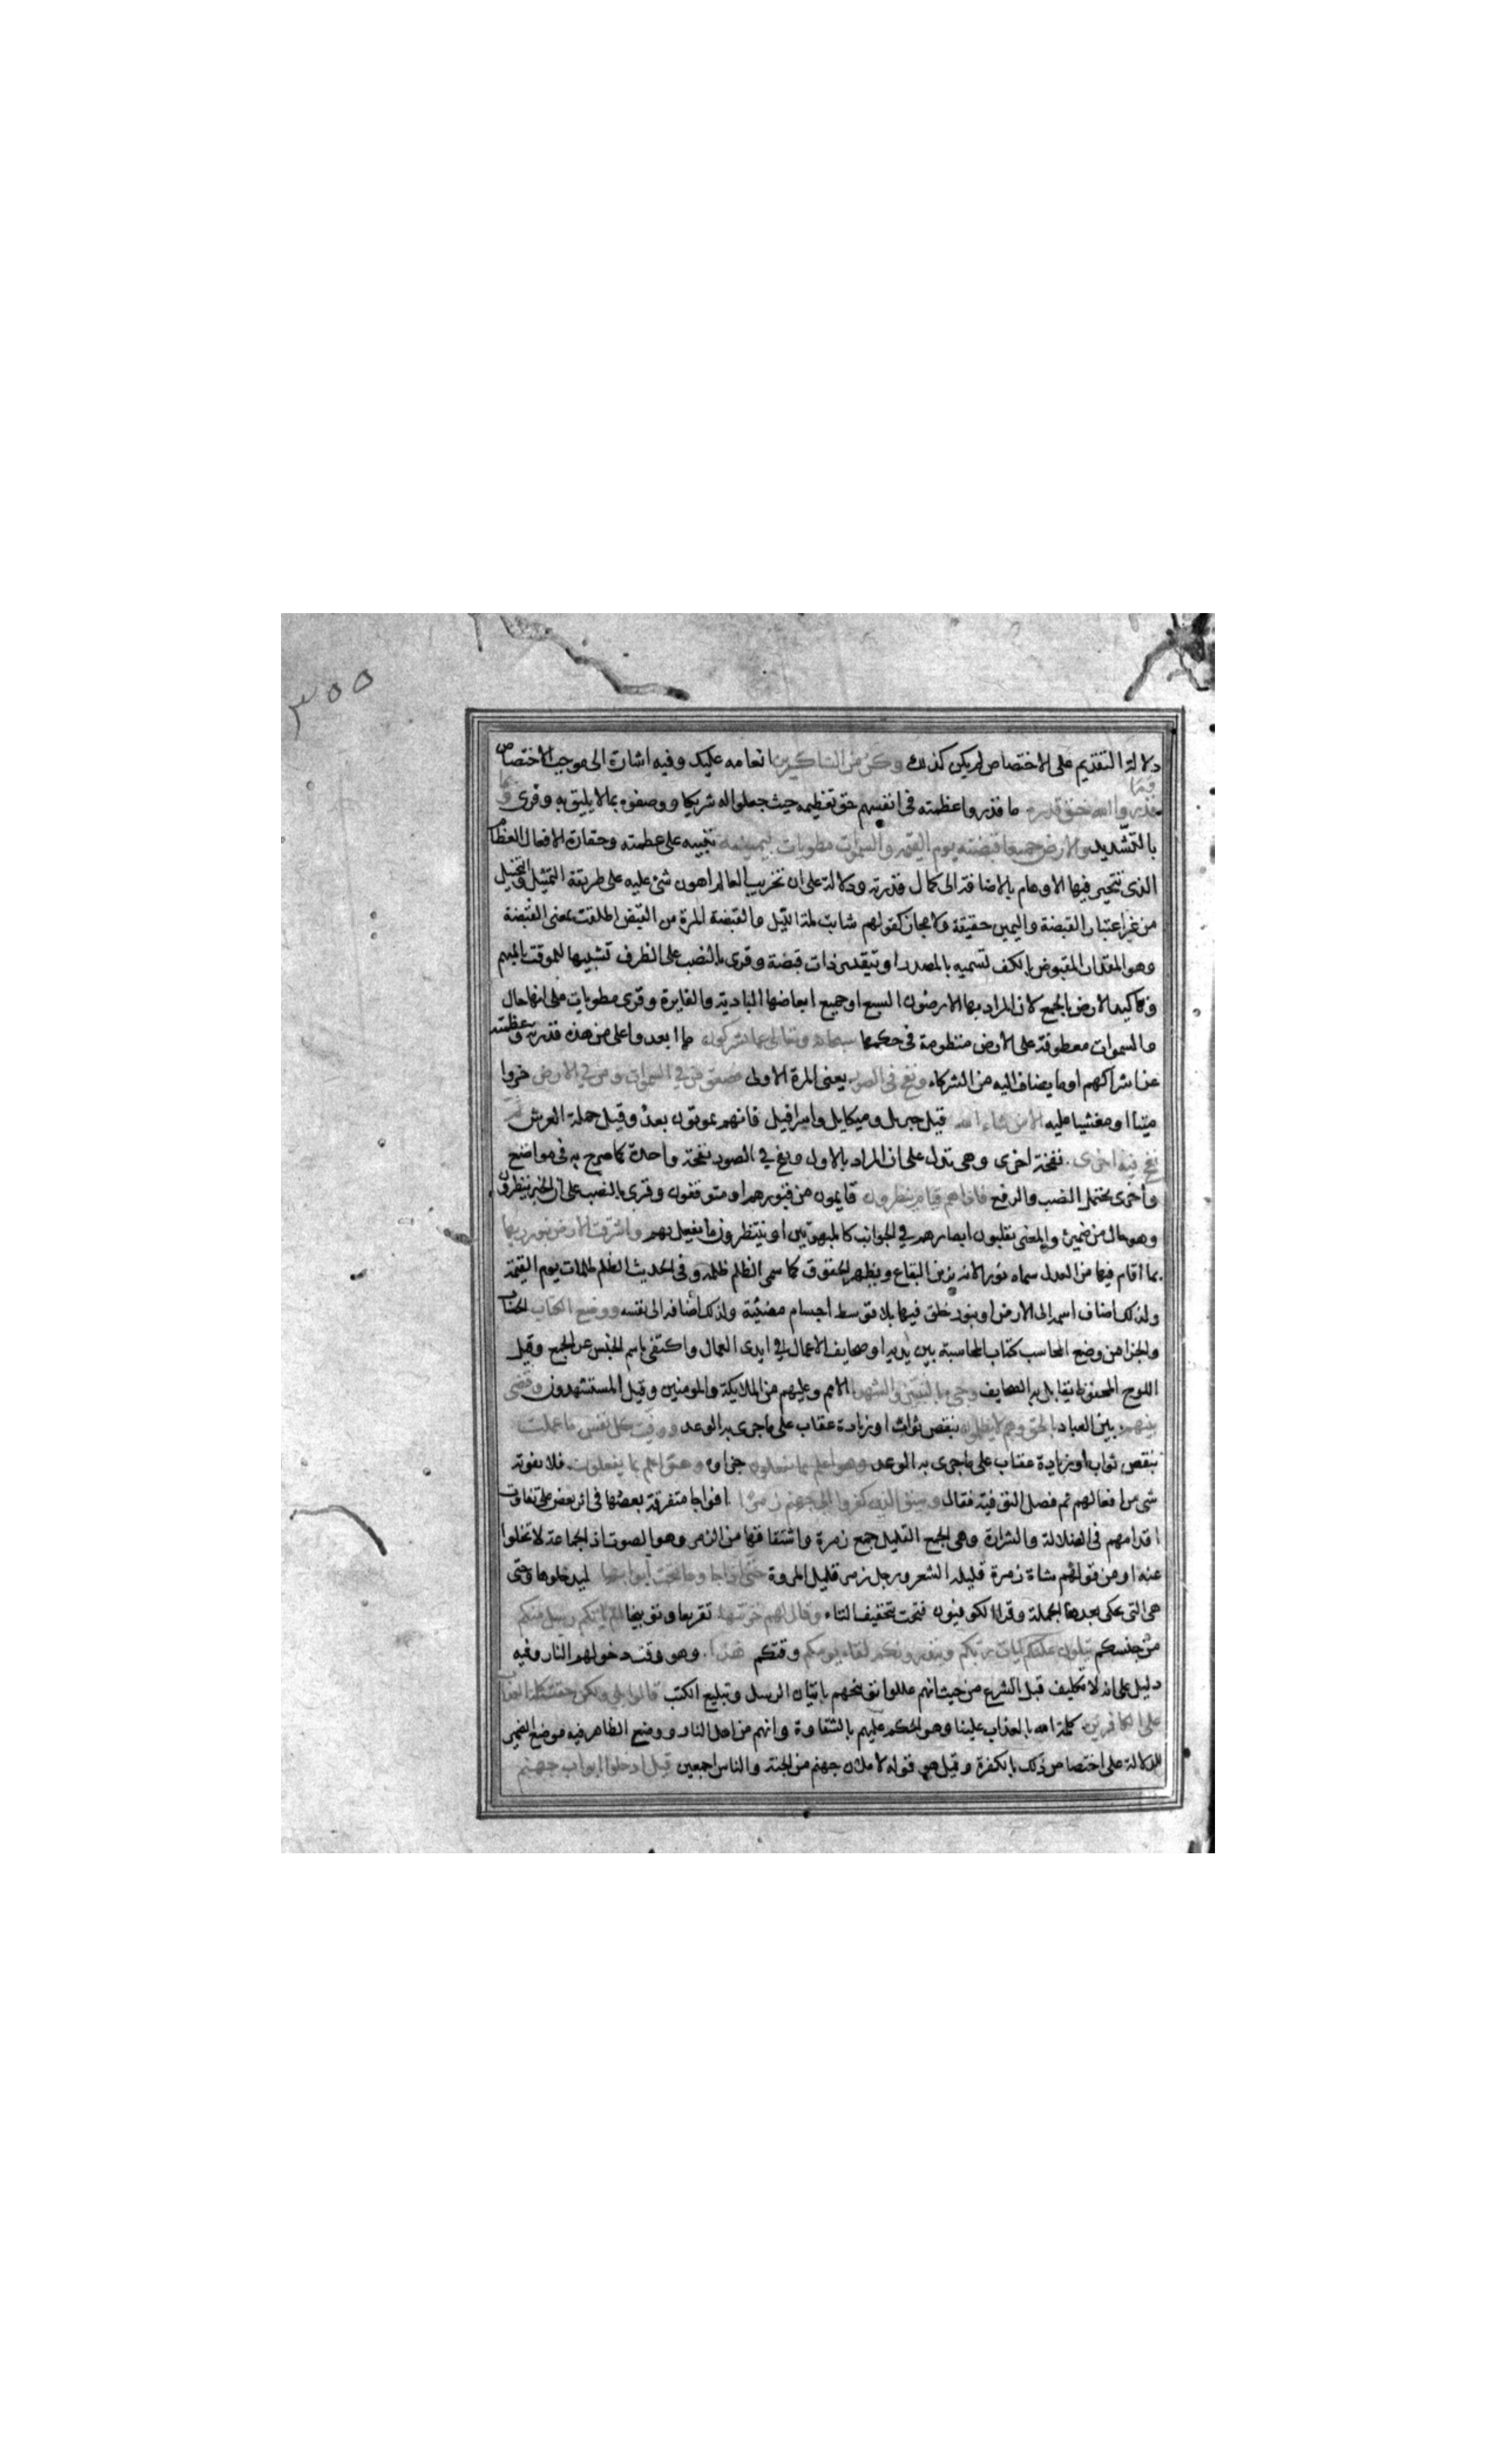 ٣٥٥
دلالة التقديم على الاختصاص لم يكن كذلك وكن من الشاكرين انعامه عليك وفيه اشارة الى موجب الاختصاص
وما
قدروا الله حق قدره ما قدروا عظمته في انفسهم حق تعظيمه حيث جعلوا له شريكا ووصفوه بما لا يليق به وقرئ
بالتشديد والارض جميعا قبضته يوم القيمة والسموات مطويات بيمينه تنبيه على عظمته وحقارة الافعال العظام
الذى تتحير فيها الاوهام بالاضافة الى كمال قدرته ودلالة على ان تخريب العالم اهون شئ عليه على طريقة التمثيل والتخييل
من غير اعتبار القبضة واليمين حقيقة ولا مجاز كقولهم شابت لمة الليل والقبضة المرة من القبض اطلقت بمعنى القبضة
وهو المقدار المقبوض بالكف تسميه بالمصدر او بتقدير ذات قبضة وقرى بالنصب على الظرف تشبيها للموقت بالمبهم
وتاكيد الارض بالجمع لان المراد بها الارضون السبع او جميع ابعاضها البادية والغايرة وقرى مطويات على انها حال
والسموات معطوفة على الارض منظومة في حكمها سبحانه وتعالى عما يشركون ما ابعد واعلى من هذه قدرته وعظمته
عن اشراكهم او ما يضاف اليه من الشركاء ونفخ في الصور يعنى المرة الاولى فصعق من في السموات ومن في الارض خروا
ميتا او مغشيا عليه الا من شاء الله قيل جبريل وميكايل واسرافيل فانهم يموتون بعد وقيل حملة العرش ثم
نفخ فيه اخرى نفخة اخرى وهي تدل على ان المراد بالاول ونفخ في الصور نفخة واحدة كما صرح به في مواضع
واخرى يحتمل النصب والرفع فاذا هم قيام ينظرون قايمون من قبورهم او متوقفون وقرى بالنصب على ان الخبر ينظرون
وهو حال من ضميره والمعنى يقلبون ابصارهم في الجوانب كالمبهوتين او ينتظرون ما يفعل بهم واشرقت الارض بنور ربها
بما اقام فيها من العدل سماه نورا لانه يزين البقاع ويظهر الحقوق كما سمى الظلم ظلمة وفي الحديث الظلم ظلمات يوم القيمة
ولذلك اضاف اسمه الى الارض او بنور خلق فيها بلا توسط اجسام مضيئة ولذلك اضافه الى نفسه ووضع الكتاب الحساب
والجزا من وضع المحاسب كتاب المحاسبة بين يديه او صحايف الاعمال في ايدى العمال واكتفى باسم الجنس عن الجمع وقيل
اللوح المحفوظ يقابل به الصحايف وجئ بالنبيين والشهدا الامم وعليهم من الملايكة والمومنين وقيل المستشهدون وقضى
بينهم بين العباد بالحق وهم لا يظلمون بنقص ثواب او زيادة عقاب على ما جرى به الوعد ووفيت كل نفس ما عملت
بنقص ثواب او زيادة عقاب على ما جرى به الوعد وهو اعلم بما يفعلون جزاه وهو اعلم بما يفعلون فلا يفوته
شى من افعالهم ثم فصل التوفية فقال وسيق الذين كفروا الى جهنم زمرا افواجا متفرقة بعضها في اثر بعض على تفاوت
اقدامهم في الضلالة والشرارة وهي الجمع القليل جمع زمرة واشتقاقها من الزمر وهو الصوت اذ الجماعة لا تخلوا
عنه او من قولهم شاة زمرة قليلة الشعر ورجل زمر قليل المروة حتى اذا جاوها فتحت ابوابها ليدخلوها وحتى
هي التى تحكى بعدها الجملة وقرا الكوفيون فتحت بتخفيف التاء وقال لهم خزنتها تقريعا وتوبيخا الم ياتكم رسل منكم
من جنسكم يتلون عليكم ايات ربكم وينذرونكم لقاء يومكم وقتكم هذا وهو وقت دخولهم النار وفيه
دليل على انه لا تكليف قبل الشرع من حيث انهم عللوا توبيخهم باتيان الرسل وتبليغ الكتب قالوا بلى ولكن حقت كلمة العذاب
على الكافرين كلمة الله بالعذاب علينا وهو الحكم عليهم بالشقاوة وانهم من اهل النار ووضع الظاهر فيه موضع الضمير
للدلالة على اختصاص ذلك بالكفرة وقيل هي قوله لاملان جهنم من الجنة والناس اجمعين قيل ادخلوا ابواب جهنم